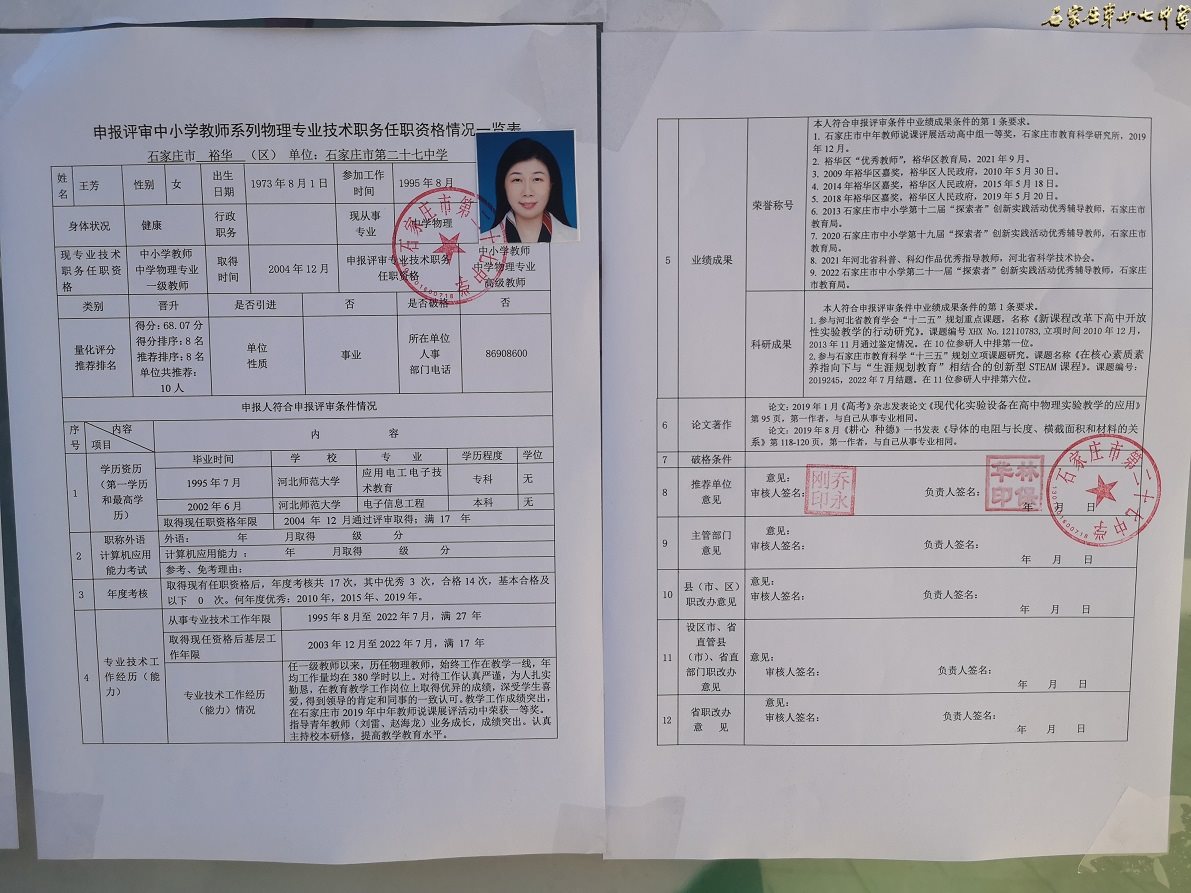 石家庄第廿七中学
申报评审中小学教师系列物理专业技术职务任职资格情况一览表
石家庄市 裕华 （区） 单位：石家庄市第二十七中学
姓名 王芳 性别 女 出生日期 1973年8月1日 参加工作时间 1995年8月
身体状况 健康 行政职务 现从事专业 中学物理
现专业技术职务任职资格 中小学教师中学物理专业一级教师 取得时间 2004年12月 申报评审专业技术职务任职资格 中小学教师中学物理专业高级教师
类别 晋升 是否引进 否 是否破格 否
量化评分推荐排名 得分：68.07分 得分排序：8名 推荐排序：8名 单位共推荐：10人 单位性质 事业 所在单位人事部门电话 86908600
申报人符合申报评审条件情况
序号 内容 项目 内 容
1 学历资历（第一学历和最高学历） 毕业时间 学 校 专 业 学历程度 学位
1995年7月 河北师范大学 应用电工电子技术教育 专科 无
2002年6月 河北师范大学 电子信息工程 本科 无
取得现任职资格年限 2004 年 12 月通过评审取得；满 17 年
2 职称外语计算机应用能力考试 外语： 年 月取得 级 分
计算机应用能力： 年 月取得 级 分
参考、免考理由：
3 年度考核 取得现有任职资格后，年度考核共 17次，其中优秀 3 次，合格14次，基本合格及
以下 0 次。何年度优秀：2010年，2015年、2019年。
4 专业技术工作经历（能力） 从事专业技术工作年限 1995年8月至 2022年7月，满 27 年
取得现任资格后基层工作年限 2003年12月至2022年7月，满 17 年
专业技术工作经历（能力）情况 任一级教师以来，历任物理教师，始终工作在教学一线，年
均工作量均在380学时以上。对待工作认真严谨，为人扎实
勤恳，在教育教学工作岗位上取得优异的成绩，深受学生喜
爱，得到领导的肯定和同事的一致认可。教学工作成绩突出，
在石家庄市2019年中年教师说课展评活动中荣获一等奖。
指导青年教师（刘雷、赵海龙）业务成长，成绩突出。认真
主持校本研修，提高教学教育水平。
石家庄市第二十七中学
5 业绩成果 荣誉称号 本人符合申报评审条件中业绩成果条件的第1条要求。
1. 石家庄市中年教师说课评展活动高中组一等奖，石家庄市教育科学研究所，2019
年12月。
2. 裕华区“优秀教师”，裕华区教育局，2021年9月。
3. 2009年裕华区嘉奖，裕华区人民政府，2010年5月30日。
4. 2014年裕华区嘉奖，裕华区人民政府，2015年5月18日。
5. 2018年裕华区嘉奖，裕华区人民政府，2019年5月20日。
6. 2013石家庄市中小学第十二届“探索者”创新实践活动优秀辅导教师，石家庄市
教育局。
7. 2020石家庄市中小学第十九届“探索者”创新实践活动优秀辅导教师，石家庄市
教育局。
8. 2021年河北省科普、科幻作品优秀指导教师，河北省科学技术协会。
9. 2022石家庄市中小学第二十一届“探索者”创新实践活动优秀辅导教师，石家庄
市教育局。
科研成果 本人符合申报评审条件中业绩成果条件的第1条要求。
1.参与河北省教育学会“十二五”规划重点课题，名称《新课程改革下高中开放
性实验教学的行动研究》。课题编号XHX No.12110783,立项时间2010年12月，
2013年11月通过鉴定情况。在10位参研人中排第一位。
2.参与石家庄市教育科学“十三五”规划立项课题研究。课题名称《在核心素质素
养指向下与“生涯规划教育”相结合的创新型STEAM课程》。课题编号：
2019245，2022年7月结题。在11位参研人中排第六位。
6 论文著作 论文：2019年1月《高考》杂志发表论文《现代化实验设备在高中物理实验教学的应用》
第95页，第一作者，与自己从事专业相同。
论文：2019年8月《耕心 种德》一书发表《导体的电阻与长度、横截面积和材料的关
系》第118-120页，第一作者，与自己从事专业相同。
7 破格条件
8 推荐单位意见 意见：
审核人签名： 乔永刚印 负责人签名： 林保华印
年 月 日
石家庄市第二十七中学
9 主管部门意见 意见：
审核人签名： 负责人签名：
年 月 日
10 县（市、区）职改办意见 意见：
审核人签名： 负责人签名：
年 月 日
11 设区市、省直管县（市）、省直部门职改办意见 意见：
审核人签名： 负责人签名：
年 月 日
12 省职改办意 见 意见：
审核人签名： 负责人签名：
年 月 日